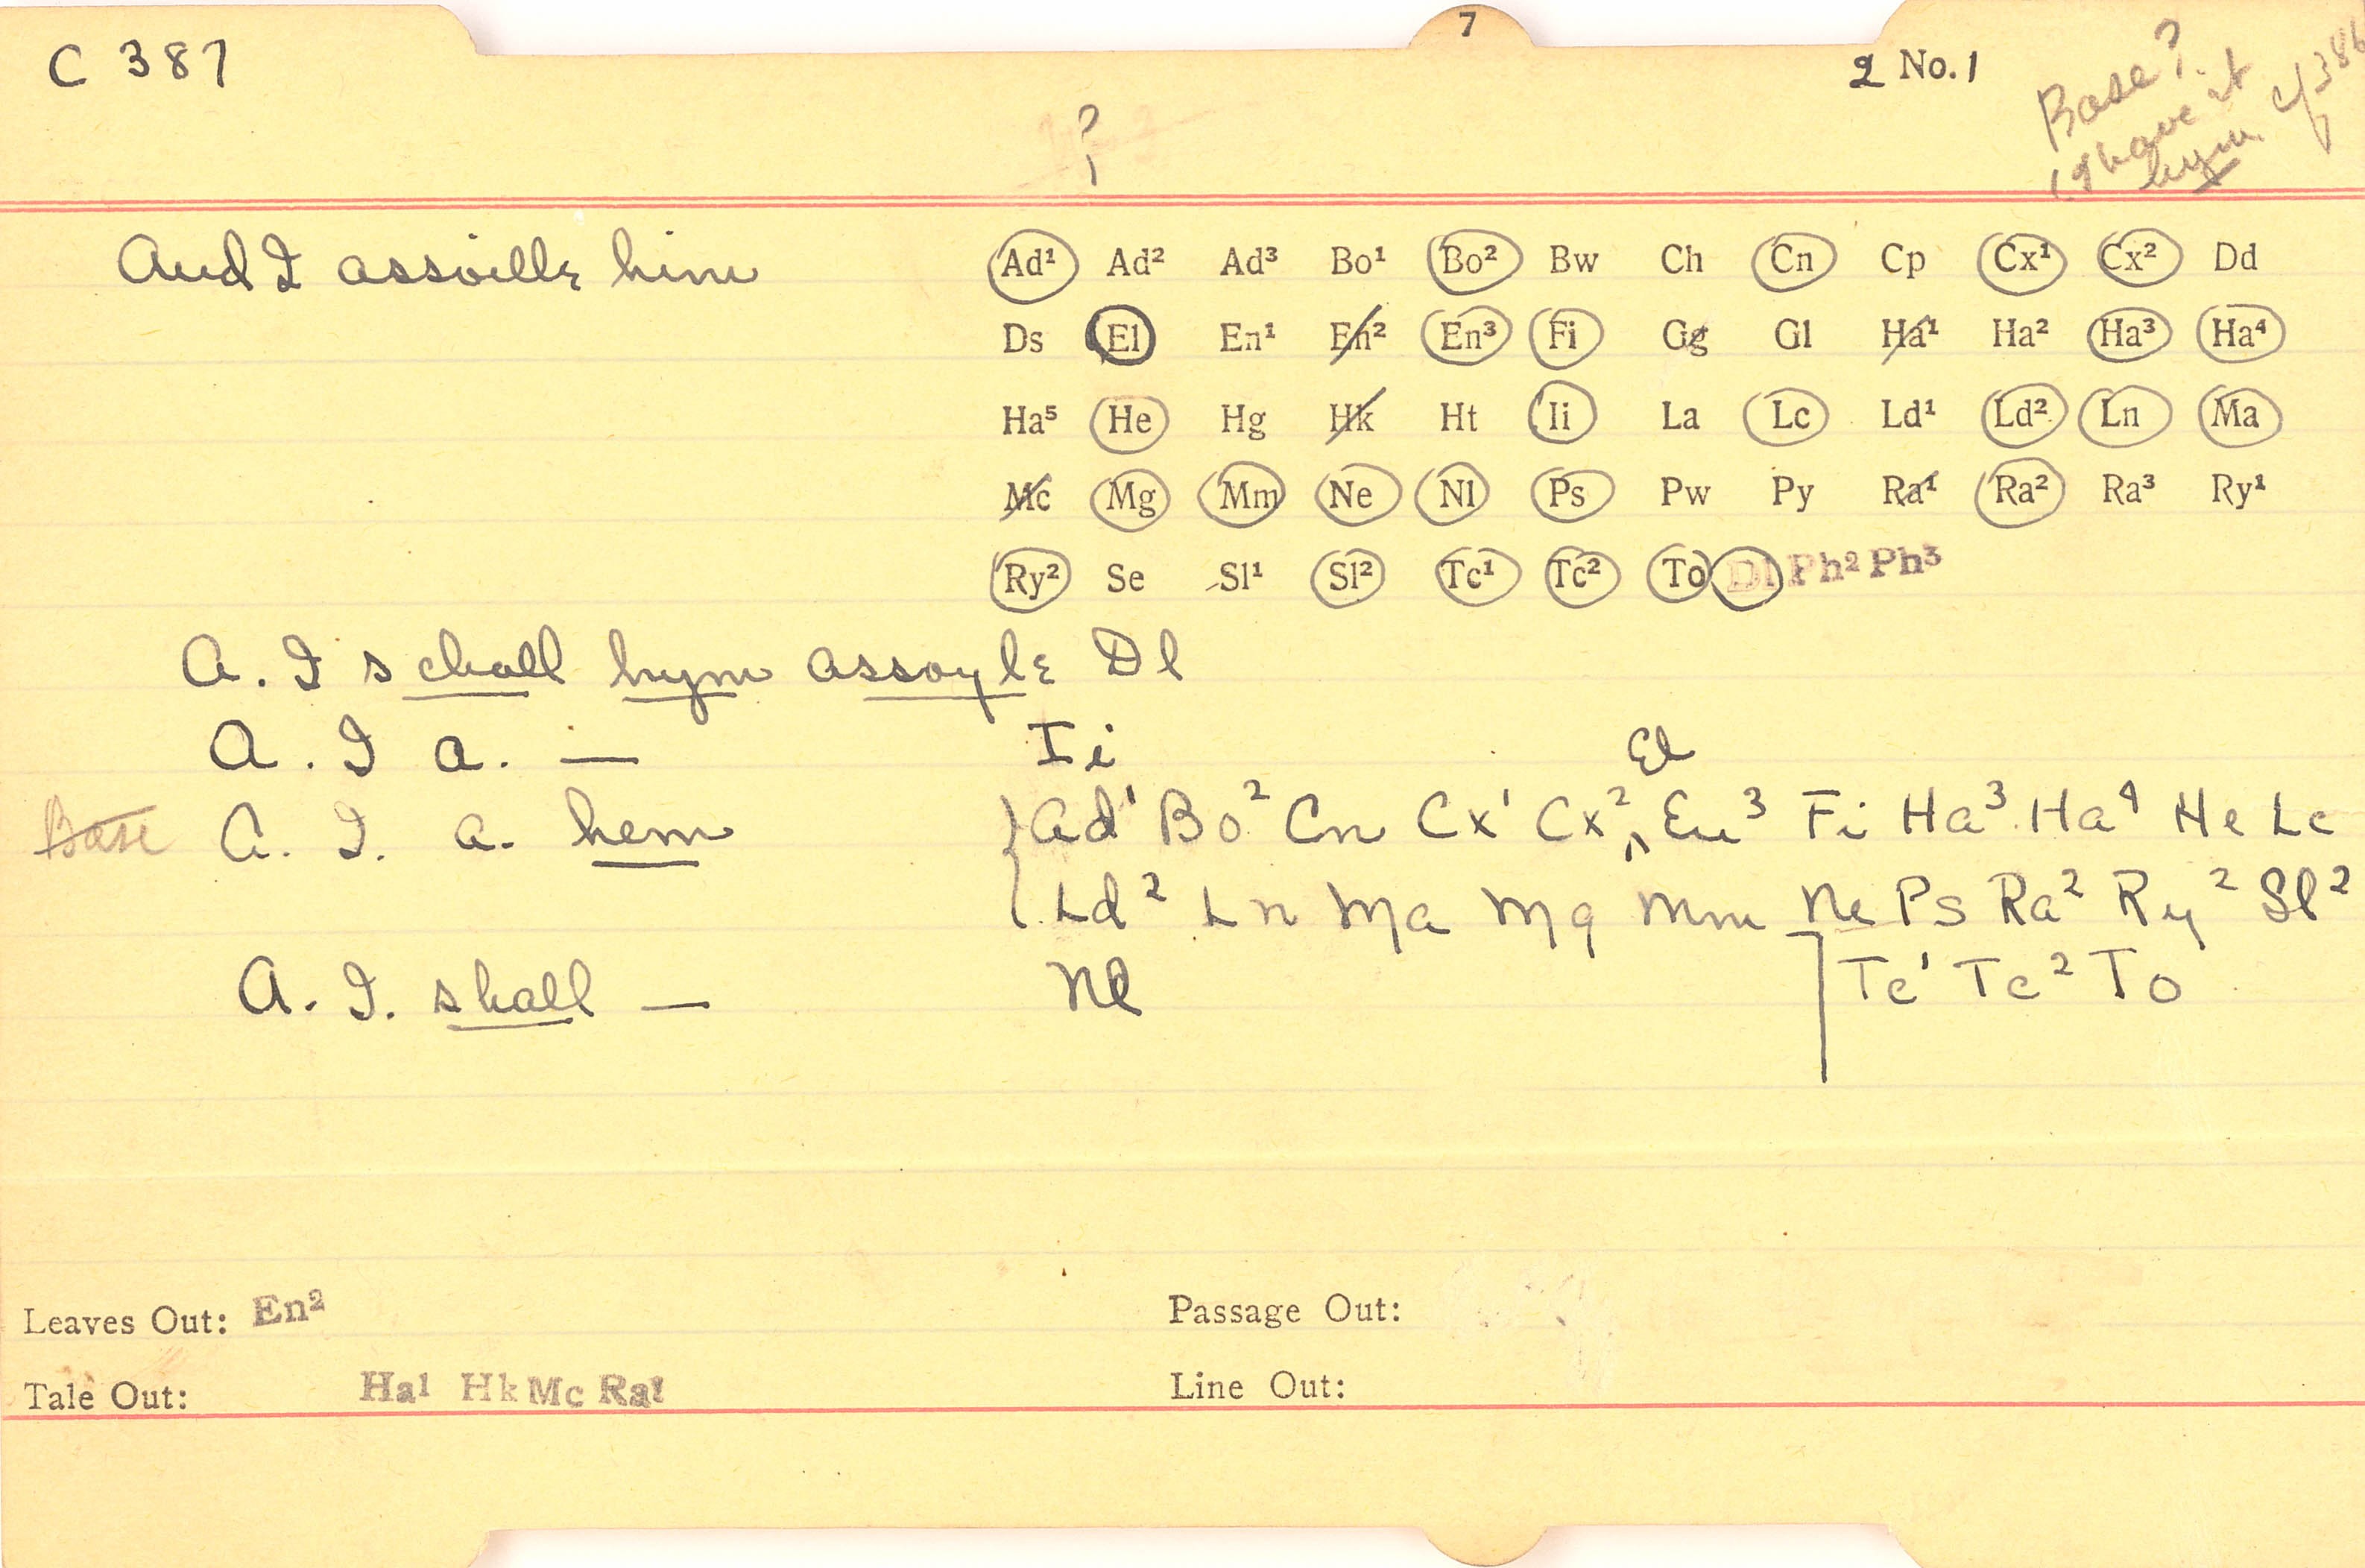 7
C 387
2 No. 1
Base?
(I have it
hym.
cf 386
?
And I assoille him
Ad¹ Ad² Ad³ Bo¹ Bo² Bw Ch Cn Cp Cx¹ Cx² Dd
Ds El En¹ En² En³ Fi Gg Gl Ha¹ Ha² Ha³ Ha⁴
Ha⁵ He Hg Hk Ht Ii La Lc Ld¹ Ld² Ln Ma
Mc Mg Mm Ne Nl Ps Pw Py Ra¹ Ra² Ra³ Ry¹
Ry² Se Sl¹ Sl² Tc¹ Tc² To Dl Ph² Ph³
A. I schall hym assoyle Dl
A. I a. — Ii
El
Base A. I. a. hem Ad¹ Bo² Cn Cx¹ Cx² En³ Fi Ha³ Ha⁴ He Lc
Ld² Ln Ma Mg Mm Ne Ps Ra² Ry² Sl²
A. I. shall — Nl Tc¹ Tc² To
Leaves Out: En² Passage Out:
Tale Out: Ha¹ Hk Mc Ra¹ Line Out: